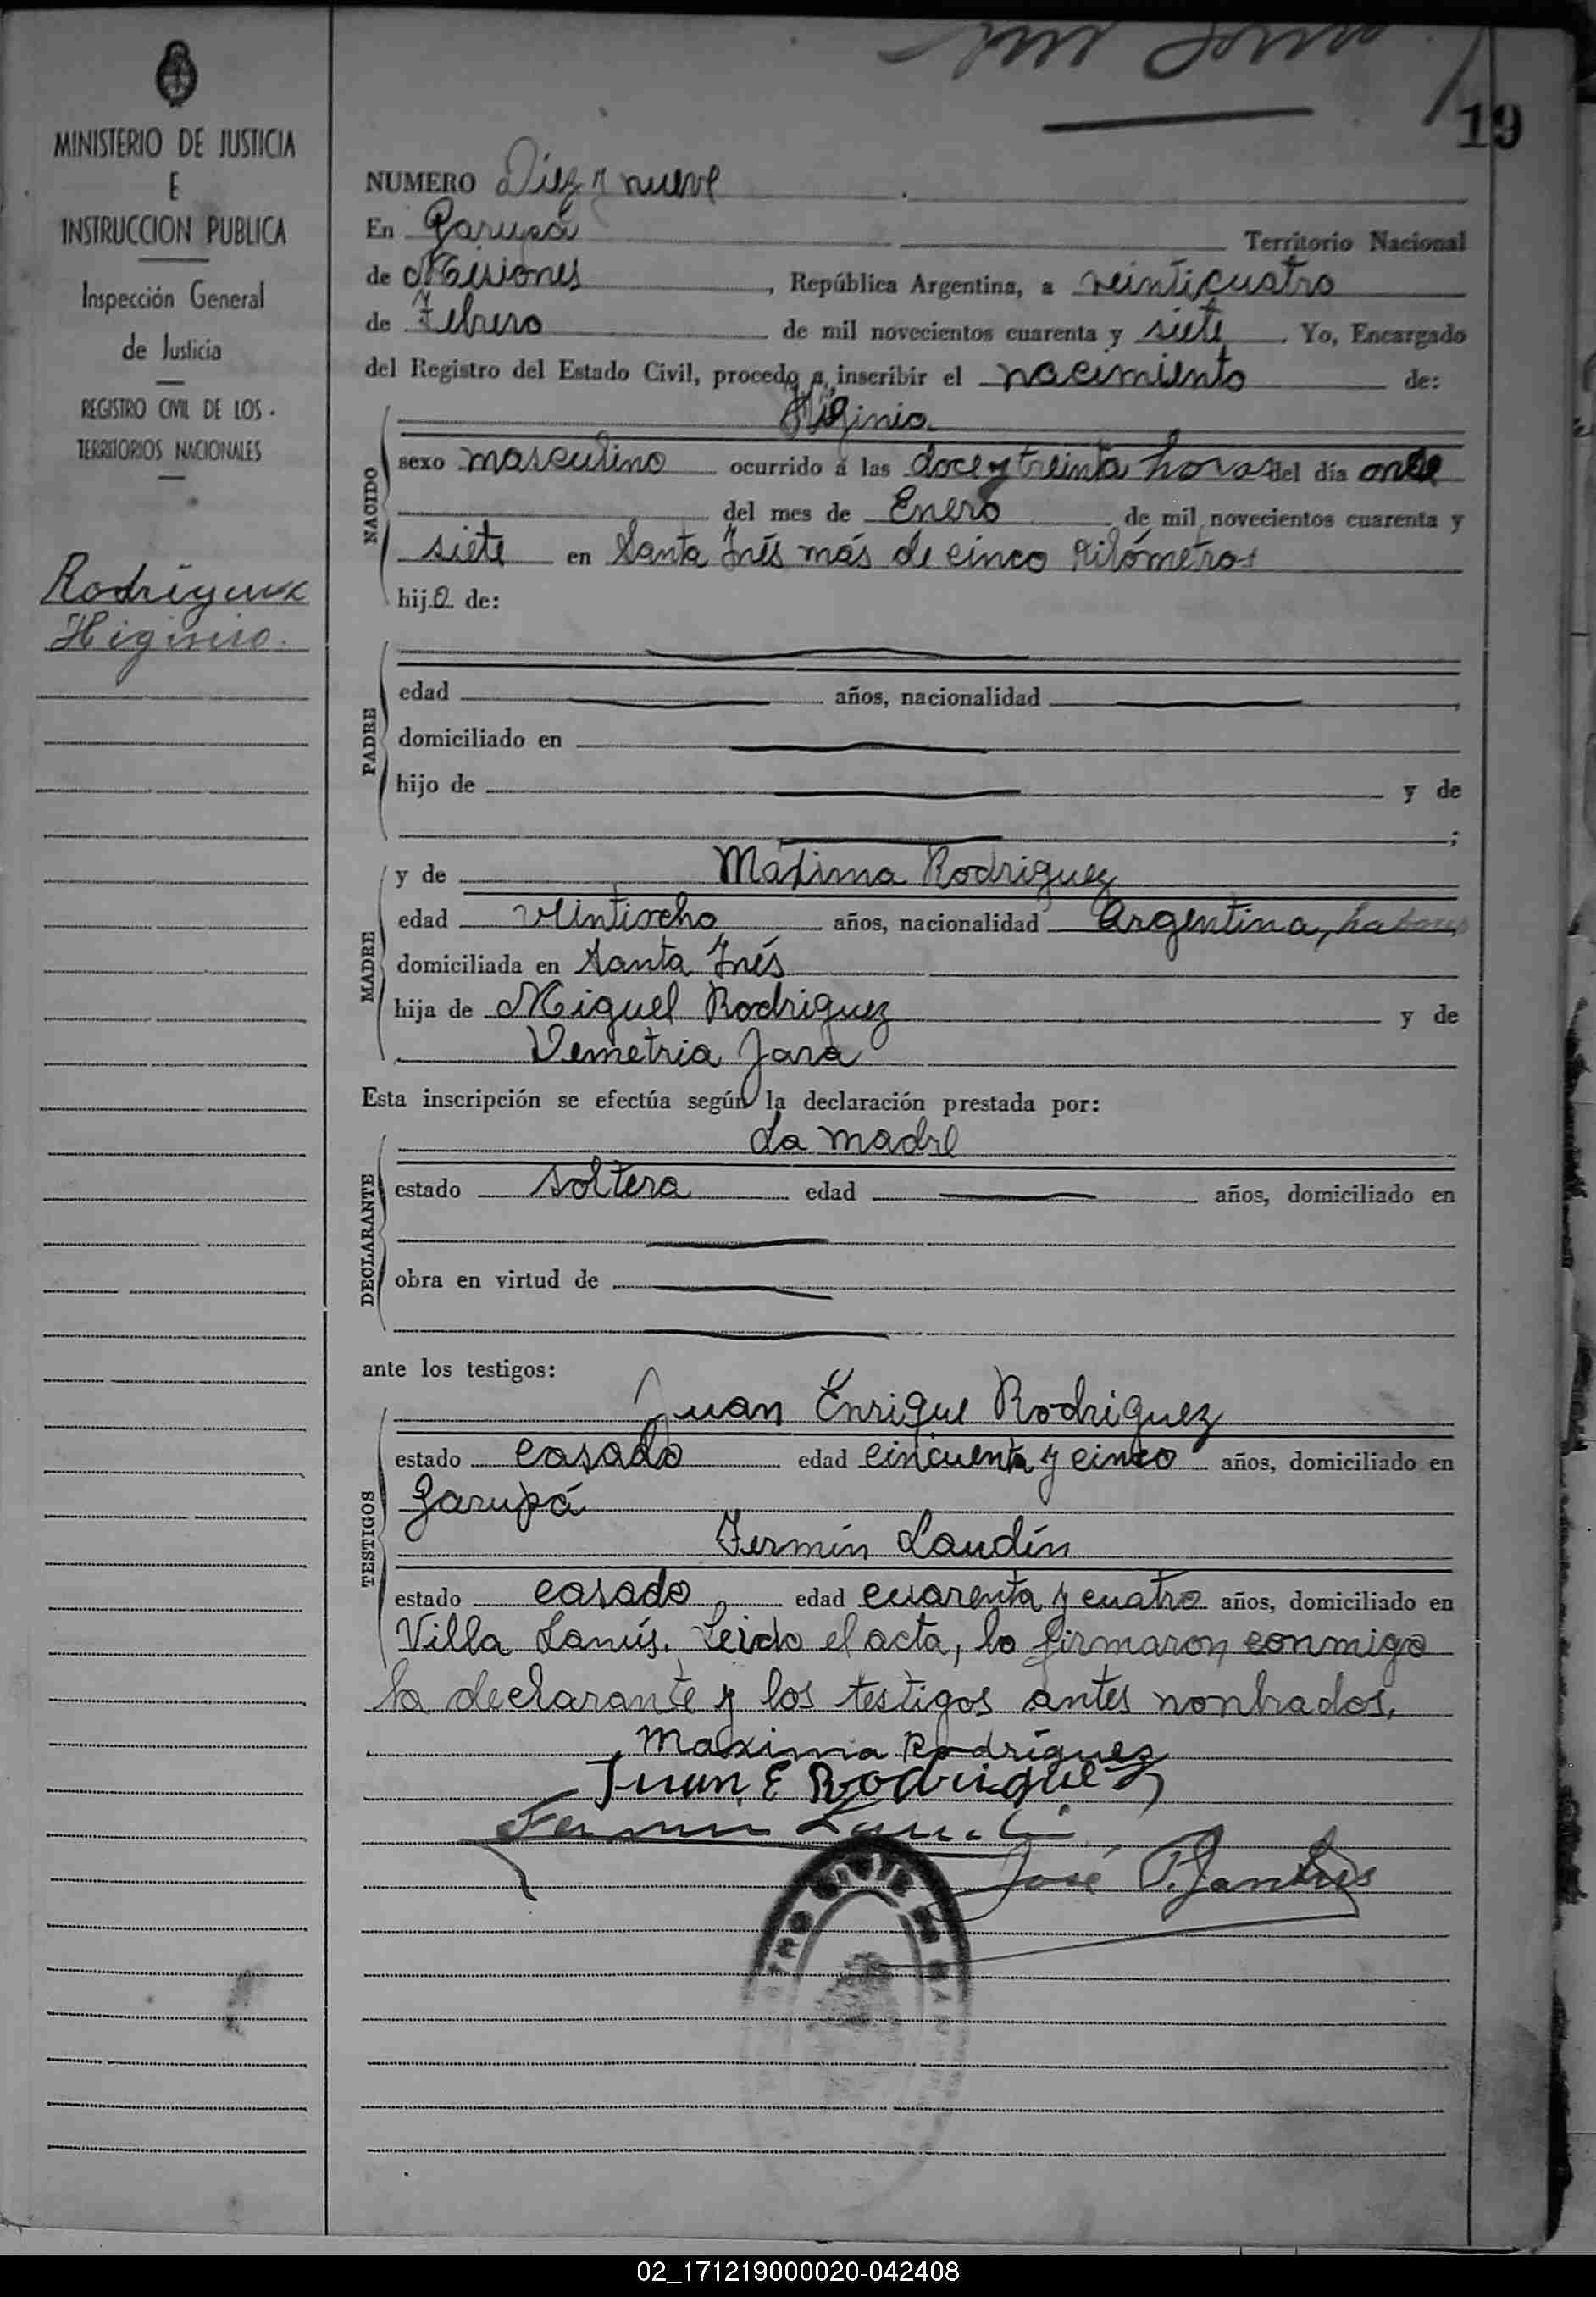 19
MINISTERIO DE JUSTICIA
E
INSTRUCCION PUBLICA
Inspección General
de Justicia
REGISTRO CIVIL DE LOS
TERRITORIOS NACIONALES
Rodríguez
Higinio.
NUMERO Diez y nueve
En Garupá Territorio Nacional
de Misiones, República Argentina, a veinticuatro
de Febrero de mil novecientos cuarenta y siete. Yo, Encargado
del Registro del Estado Civil, procedo a inscribir el nacimiento de:
Higinio
NACIDO
sexo masculino ocurrido á las doce y treinta horas del día once
del mes de Enero de mil novecientos cuarenta y
siete en Santa Inés más de cinco kilómetros
hijo de:
PADRE
edad años, nacionalidad
domiciliado en
hijo de y de
;
MADRE
y de Máxima Rodriguez
edad veintiocho años, nacionalidad Argentina, labores
domiciliada en Santa Inés
hija de Miguel Rodriguez y de
Demetria Jara
Esta inscripción se efectúa según la declaración prestada por:
La madre
DECLARANTE
estado soltera edad años, domiciliado en
obra en virtud de
ante los testigos:
Juan Enrique Rodriguez
TESTIGOS
estado casado edad cincuenta y cinco años, domiciliado en
Garupá
Fermín Landín
estado casado edad cuarenta y cuatro años, domiciliado en
Villa Lanús. Leido el acta, la firmaron conmigo
la declarante y los testigos antes nonbrados.
Maxima Rodríguez
Juan E Rodriguez
Fermin
José
02_171219000020-042408